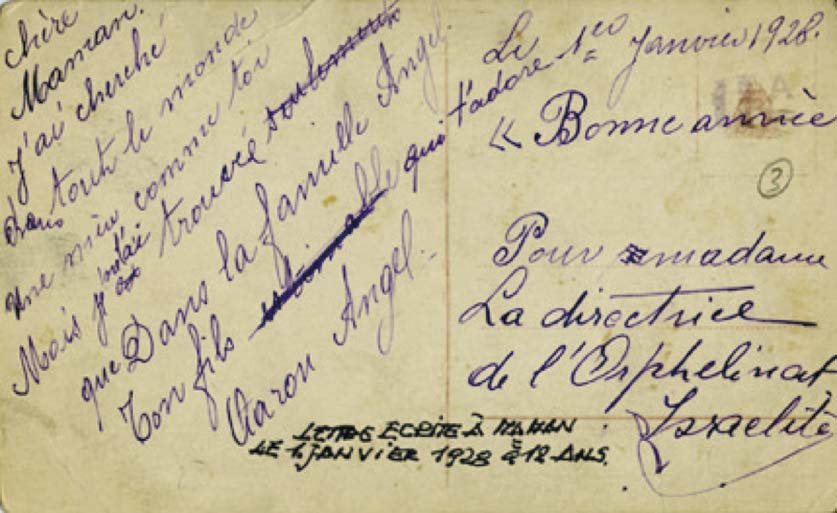 Chère
Maman.
J'ai cherché
dans toute le monde
une mien comme toi
Mais je n'ai trouvé seulement
que Dans la famille Angel.
Ton fils qui t'adore
Aaron Angel.
Le 1er Janvier 1928.
« Bonne année
3
Pour madame
La directrice
de l'Orphelinat
Israelite
LETTRE ÉCRITE À MAMAN
LE 1 JANVIER 1928 à 12 ANS.